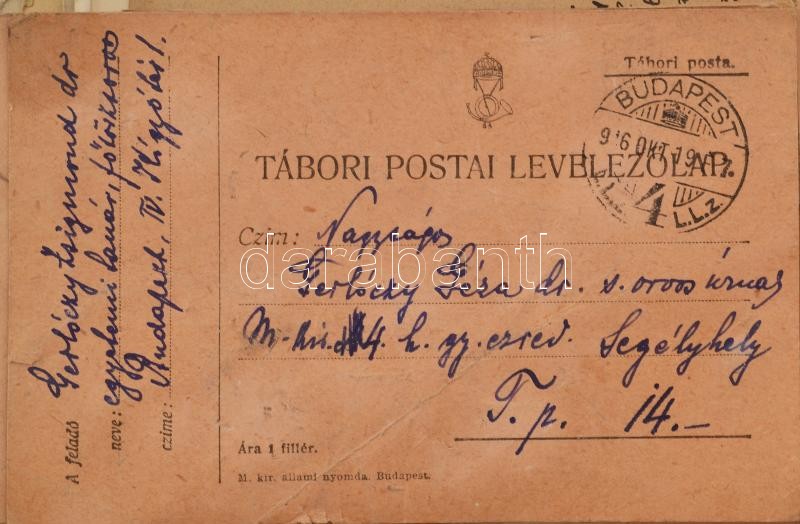 Tábori posta.
BUDAPEST
916 OKT 19
4
L.L.z.
TÁBORI POSTAI LEVELEZŐLAP.
Czim: Nagyságos
Gerlóczy Géza dr. s. orvos úrnak
M. kir. 4. h. gy. ezred. Segélyhely
T. p. 14.-
Ára 1 fillér.
M. kir. állami nyomda. Budapest.
A feladó
neve:
czime:
Gerlóczy Zsigmond dr
egyetemi tanár, főorvos
Budapest, IV. Kigyó tér 1.
darabanth